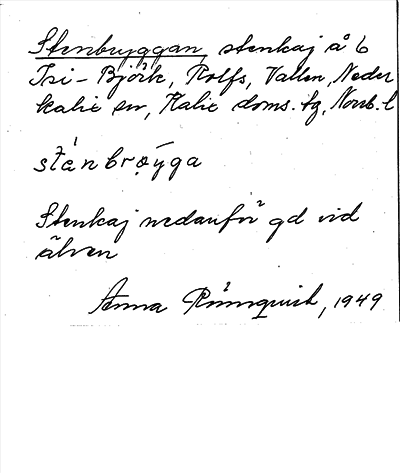 Stenbryggan, stenkaj å 6
Tri-Björk, Rolfs, Vallen, Neder
kalix sn, Kalix doms. tg, Norrb. l
sténbrǫ̀yga
Stenkaj nedanför gd vid
älven
Anna Rönnquist, 1949